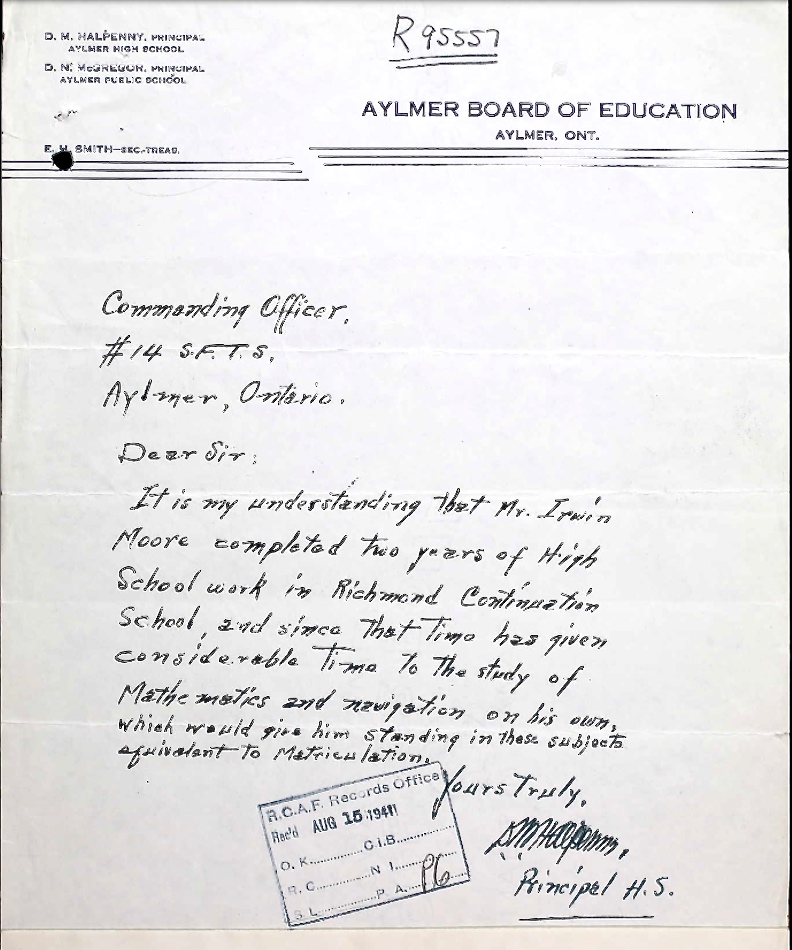 D. M. HALPENNY, PRINCIPAL
AYLMER HIGH SCHOOL
D. N. McGREGOR, PRINCIPAL
AYLMER PUBLIC SCHOOL
E. H. SMITH—SEC.-TREAS.
R 95557
AYLMER BOARD OF EDUCATION
AYLMER, ONT.
Commanding Officer,
#14 S.F.T.S.
Aylmer, Ontario.
Dear Sir:
It is my understanding that Mr. Irwin
Moore completed two years of High
School work in Richmond Continuation
School, and since that Time has given
considerable Time to the study of
Mathematics and navigation on his own,
which would give him standing in these subjects
equivalent to Matriculation.
Yours Truly,
DMHalpenny,
Principal H.S.
R.C.A.F. Records Office
Rec'd AUG 15 1941
O. K. C.I.B.
R. C. N I.
S L. P. A. P6